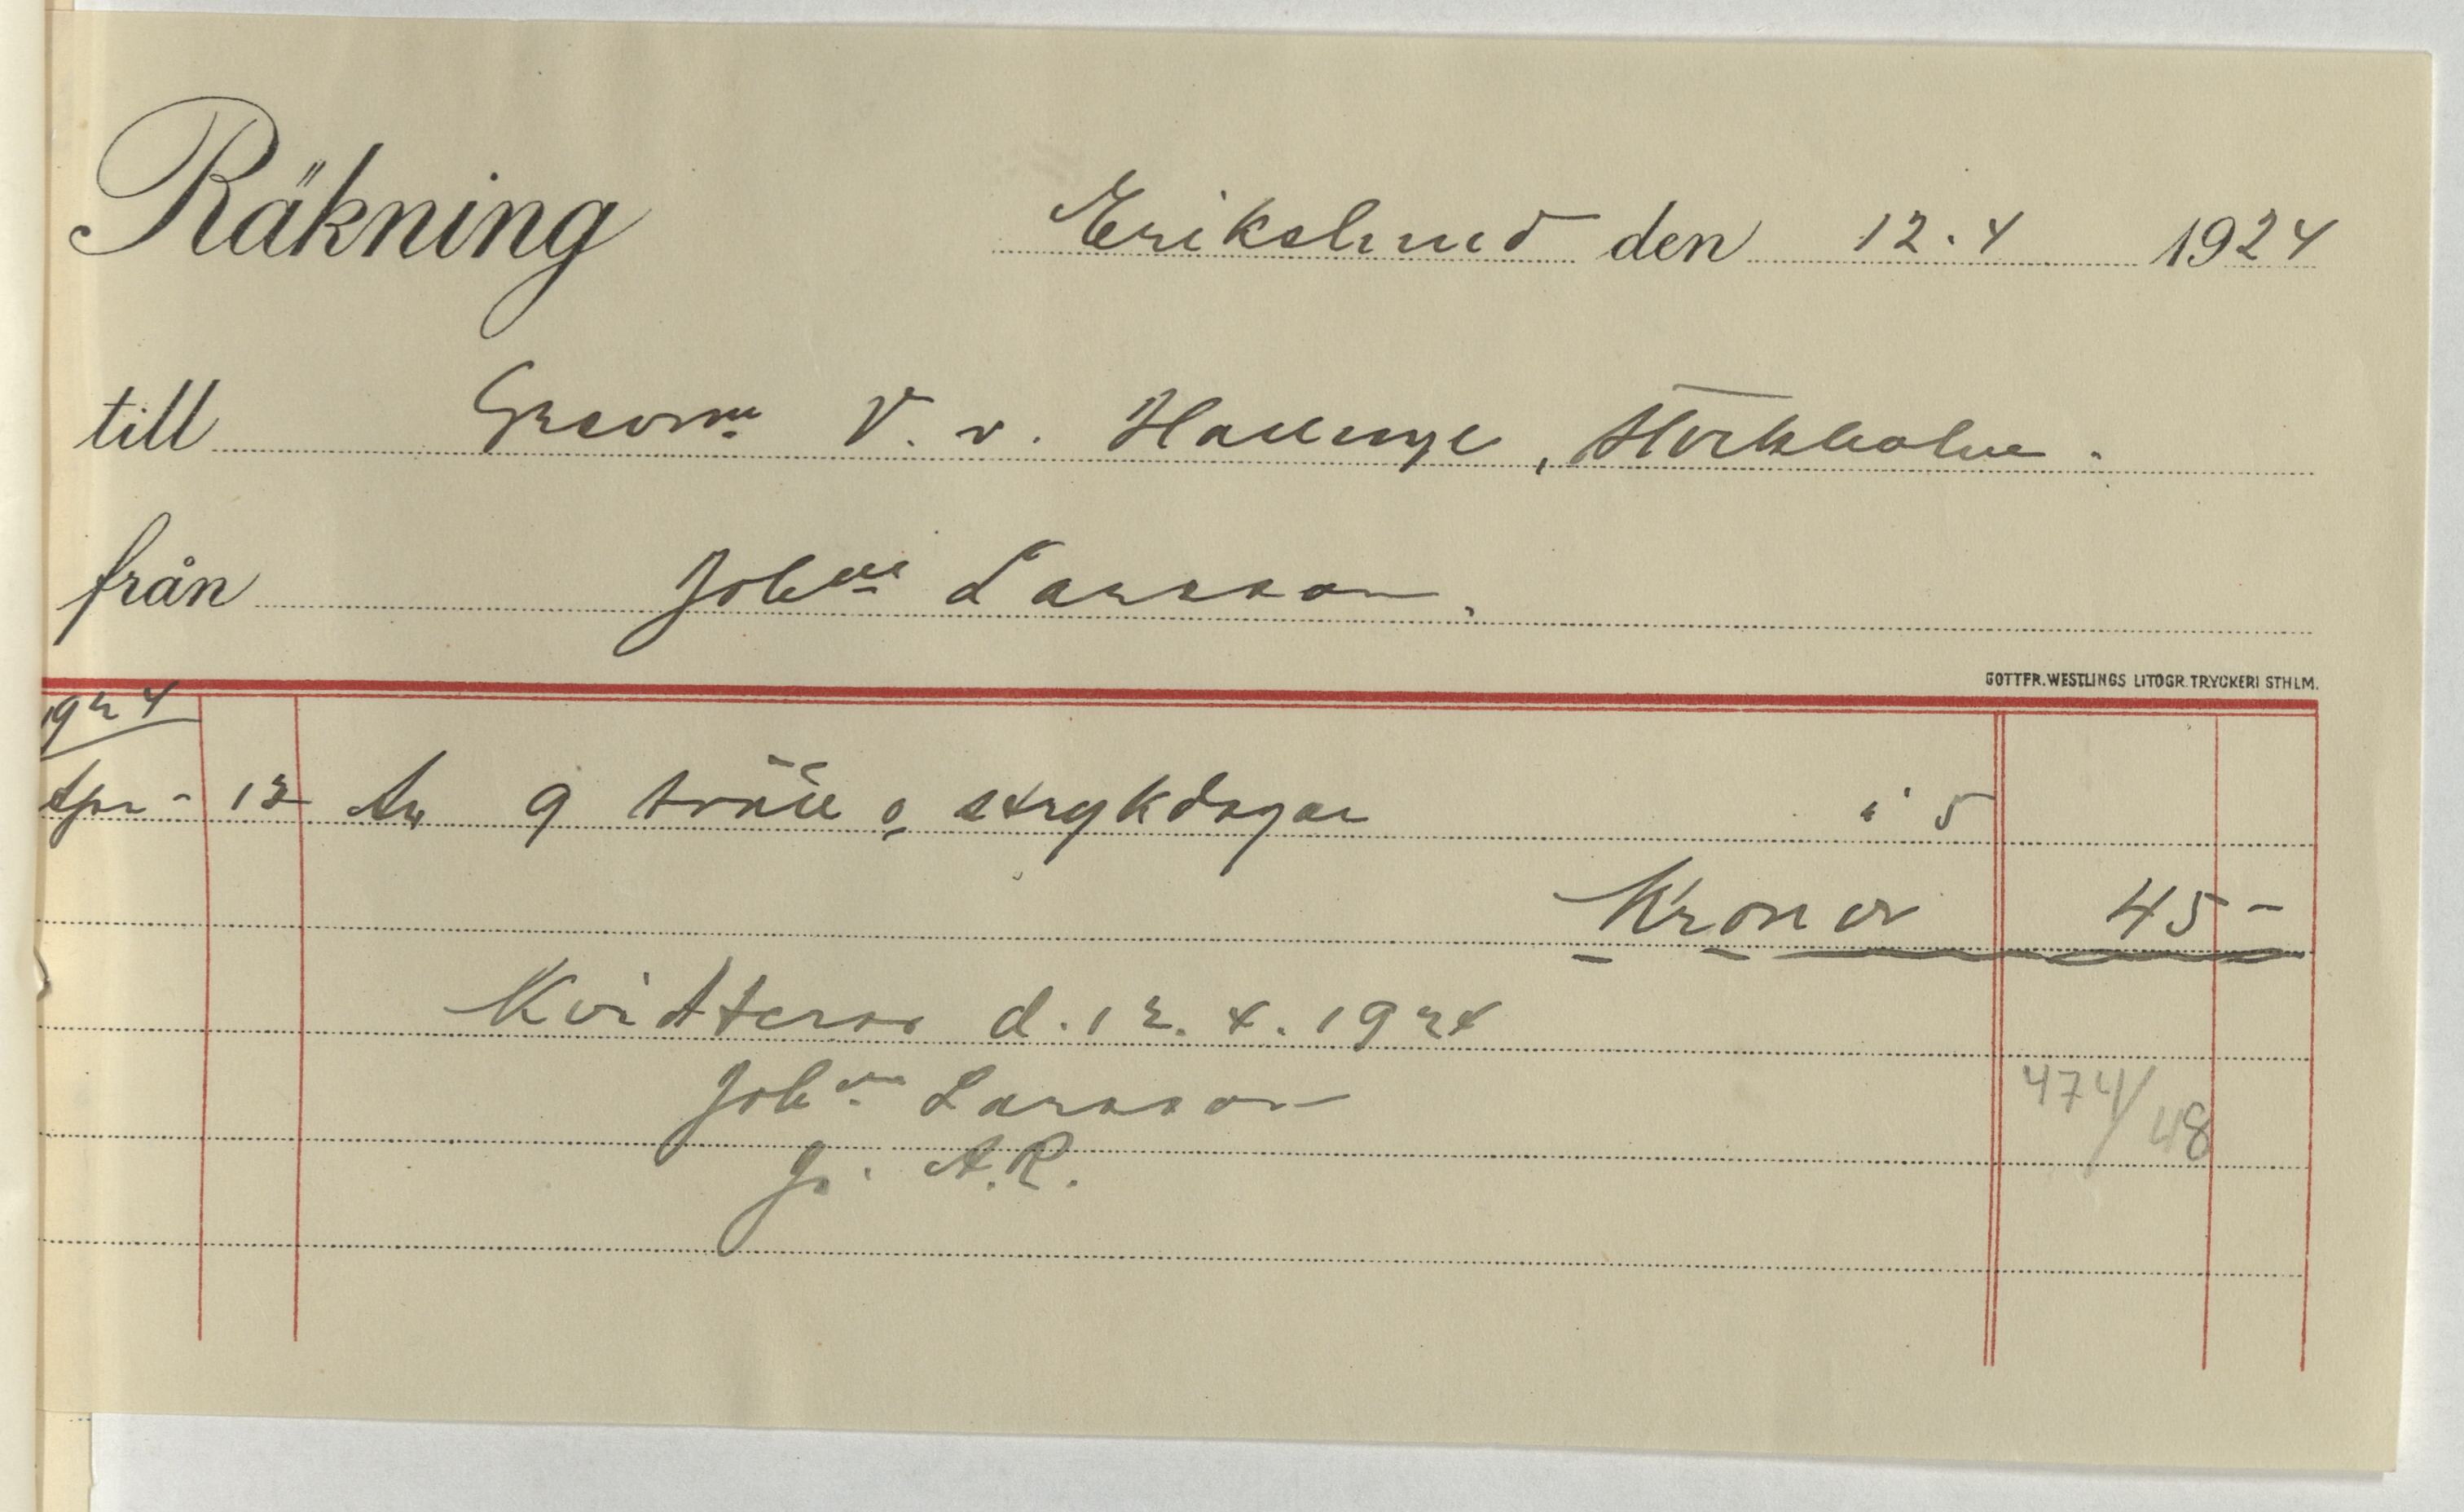 Räkning Erikslund den 12.4 1924
till Grevinn V. v. Hallwyl, Stockholm.
från Joh:na Larsson.
GOTTFR. WESTLINGS LITOGR. TRYCKERI STHLM.
1924
Apr - 12 An 9 tvätt o strykdagar i 5
Kronor 45 -
Kvitteras d. 12. 4. 1924
Joh:na Larsson
474/48
g. A.R.